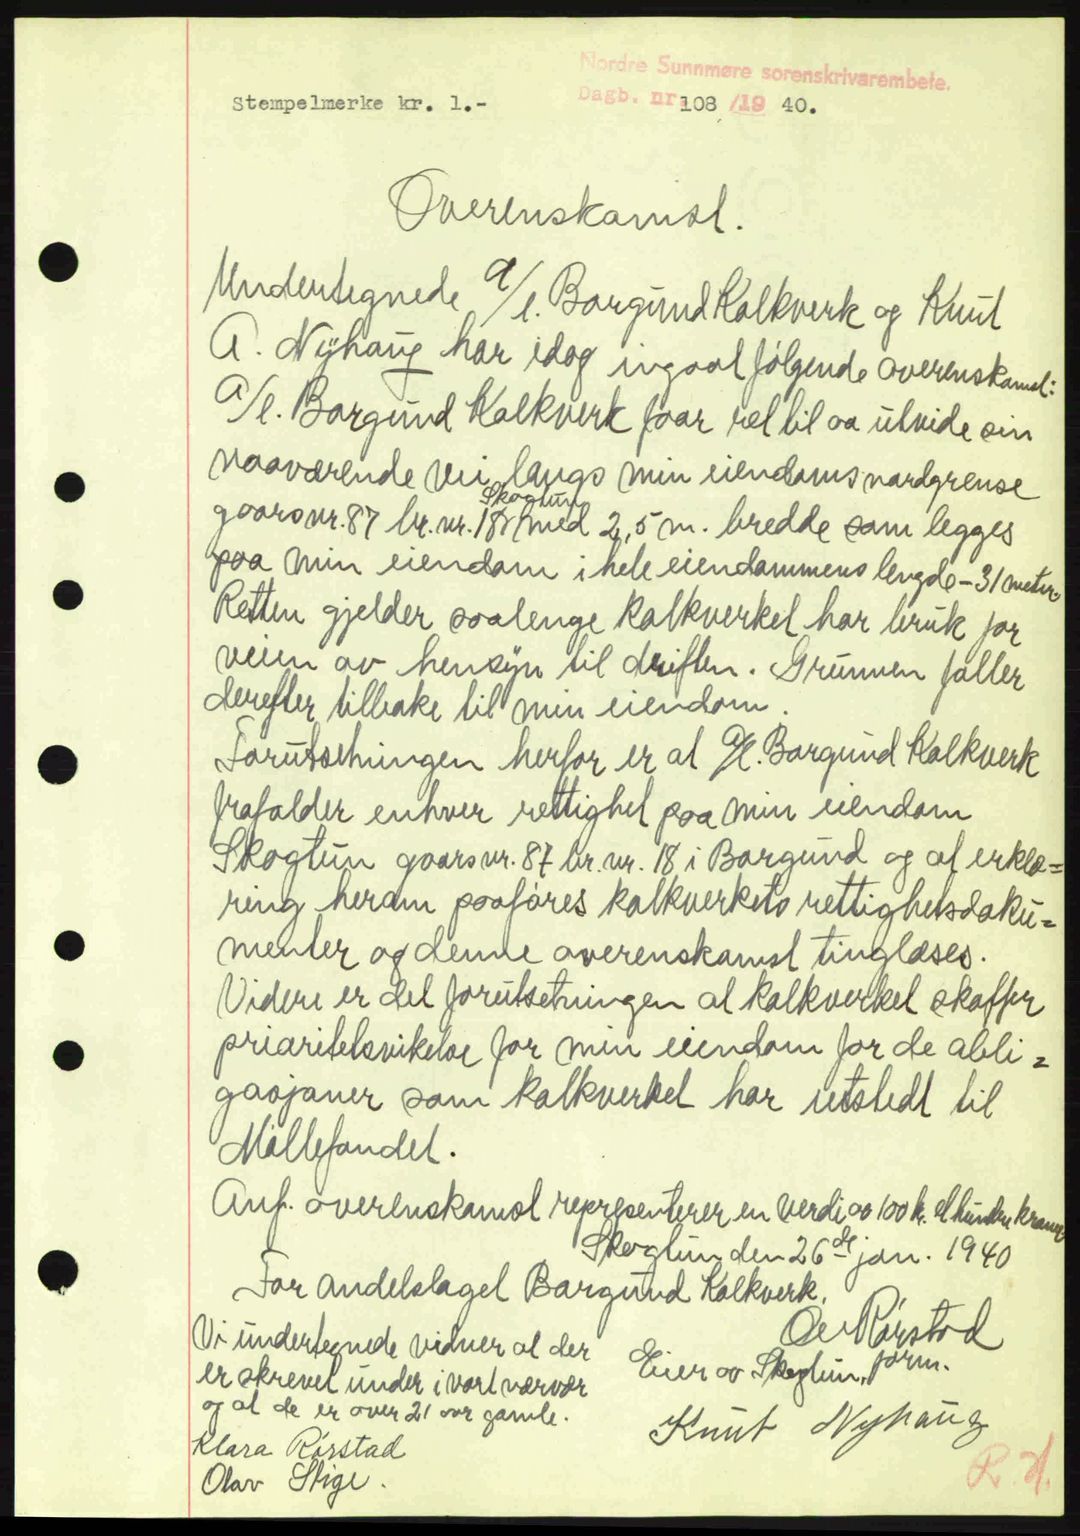 Nordre Sunnmøre sorenskrivarembete.
Stempelmerke kr. 1.- Dagb. nr 108 /19 40.
Overenskomst.
Undertegnede a/l. Borgund Kalkverk og Knut
A. Nyhaug har idag ingaat følgende overenskomst:
A/l. Borgund Kalkverk faar ret til aa utvide sin
naaværende vei langs min eiendoms nordgrense
Skogtun
gaarsnr. 87 br. nr. 18 med 2,5 m. bredde som legges
paa min eiendom i hele eiendommens lengde - 31 meter.
Retten gjelder saalenge kalkverket har bruk for
veien av hensyn til driften. Grunnen faller
derefter tilbake til min eiendom.
Forutsetningen herfor er at A/l. Borgund Kalkverk
frafalder enhver rettighet paa min eiendom
Skogtun gaarsnr. 87 br. nr. 18 i Borgund og at erklæ=
ring herom paaføres kalkverkets rettighetsdoku=
menter og denne overenskomst tinglæses.
Videre er det forutsetningen at kalkverket skaffer
prioritetsvikelse for min eiendom for de obli=
gasjoner som kalkverket har utstedt til
Møllefondet.
Anf. overenskomst representerer en verdi av 100 kr. et hundre kroner
Skogtun den 26 de jan. 1940
For andelslaget Borgund Kalkverk.
Ole Rørstad
form.
Vi undertegnede vidner at der
er skrevet under i vort nærvær
og at de er over 21 aar gamle.
Klara Rørstad
Olav Stige.
Eier av Skogtun,
Knut Nyhaug